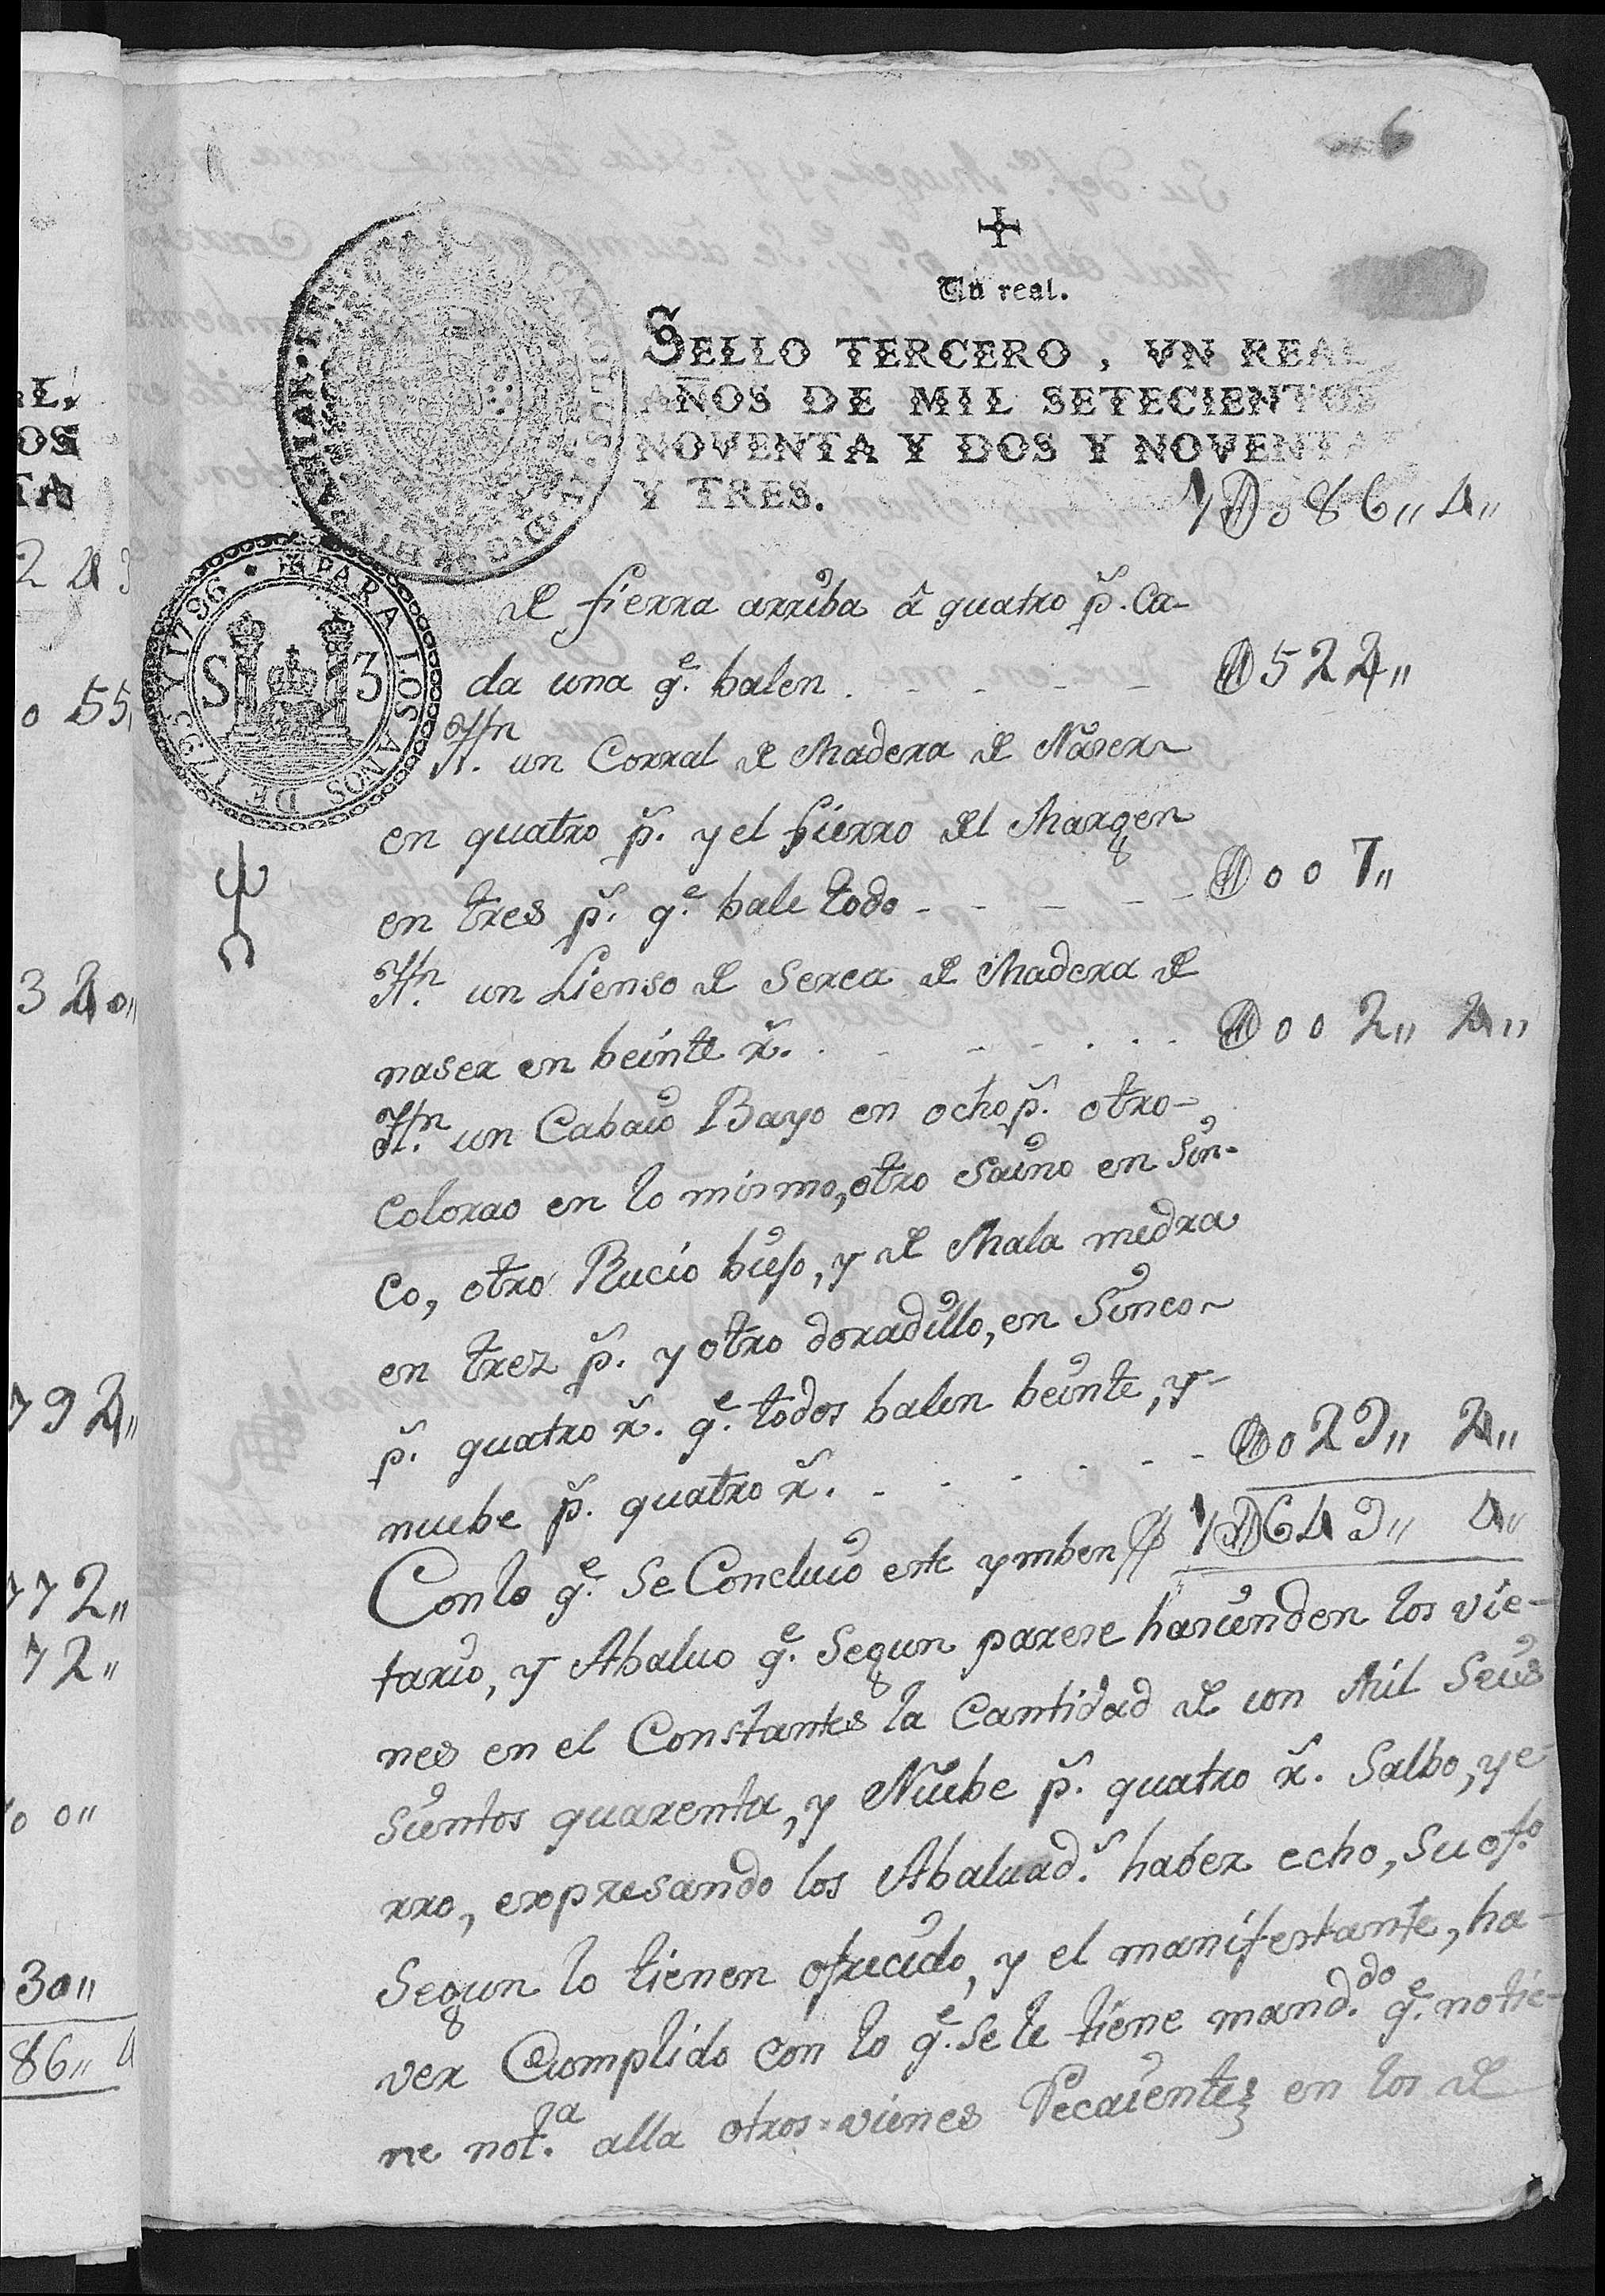 6
Un real.
SELLO TERCERO, VN REAL
AÑOS DE MIL SETECIENTOS
NOVENTA Y DOS Y NOVENTA
Y TRES.
1D086,, 4,,
PARA LOS AÑOS DE 1795 Y 1796
S 3
de fierra arriba â quatro p.s ca-
da una q.e balen . - - - - - D524,,
Ytn. un Corral de Madera de Naser~
en quatro p.s y el fierro del Margen
en tres p.s q.e bale todo - - - - - D007,,
Ytn. un Lienso de Serca de Madera de
naser en beinte r.s . - - - - . . - D002,, 4,,
Ytn. un Cabaio Bayo en ocho p.s otro-
Colorao en lo mismo, otro Saino en Sin-
co, otro Rucio bueso, y de Mala medra
en trez p.s y otro doradillo, en Sinco~
p.s quatro r.s q.e todos balen beinte, y-
nuebe p.s quatro r.s - - - - - - D029,, 4,,
Con lo q.e Se Concluio este ymben 1D649,, 4,,
tario, y Abaluo q.e Segun parese hasienden los vie-
nes en el Constantes la Cantidad de un Mil Seis
Sientos quarenta, y Nuebe p.s quatro r.s Salbo, ye-
rro, expresando los Abaluad.s haber echo, Su of.o
Segun lo tienen ofrecido, y el manifestante, ha-
ver Cumplido con lo q.e Se le tiene mand.do q.e no tie-
ne not.a alla otros vienes Pecaientes en los de
L,
OS
TA
055,
340,,
792,,
172,,
72,,
00,,
30,,
86,, 4